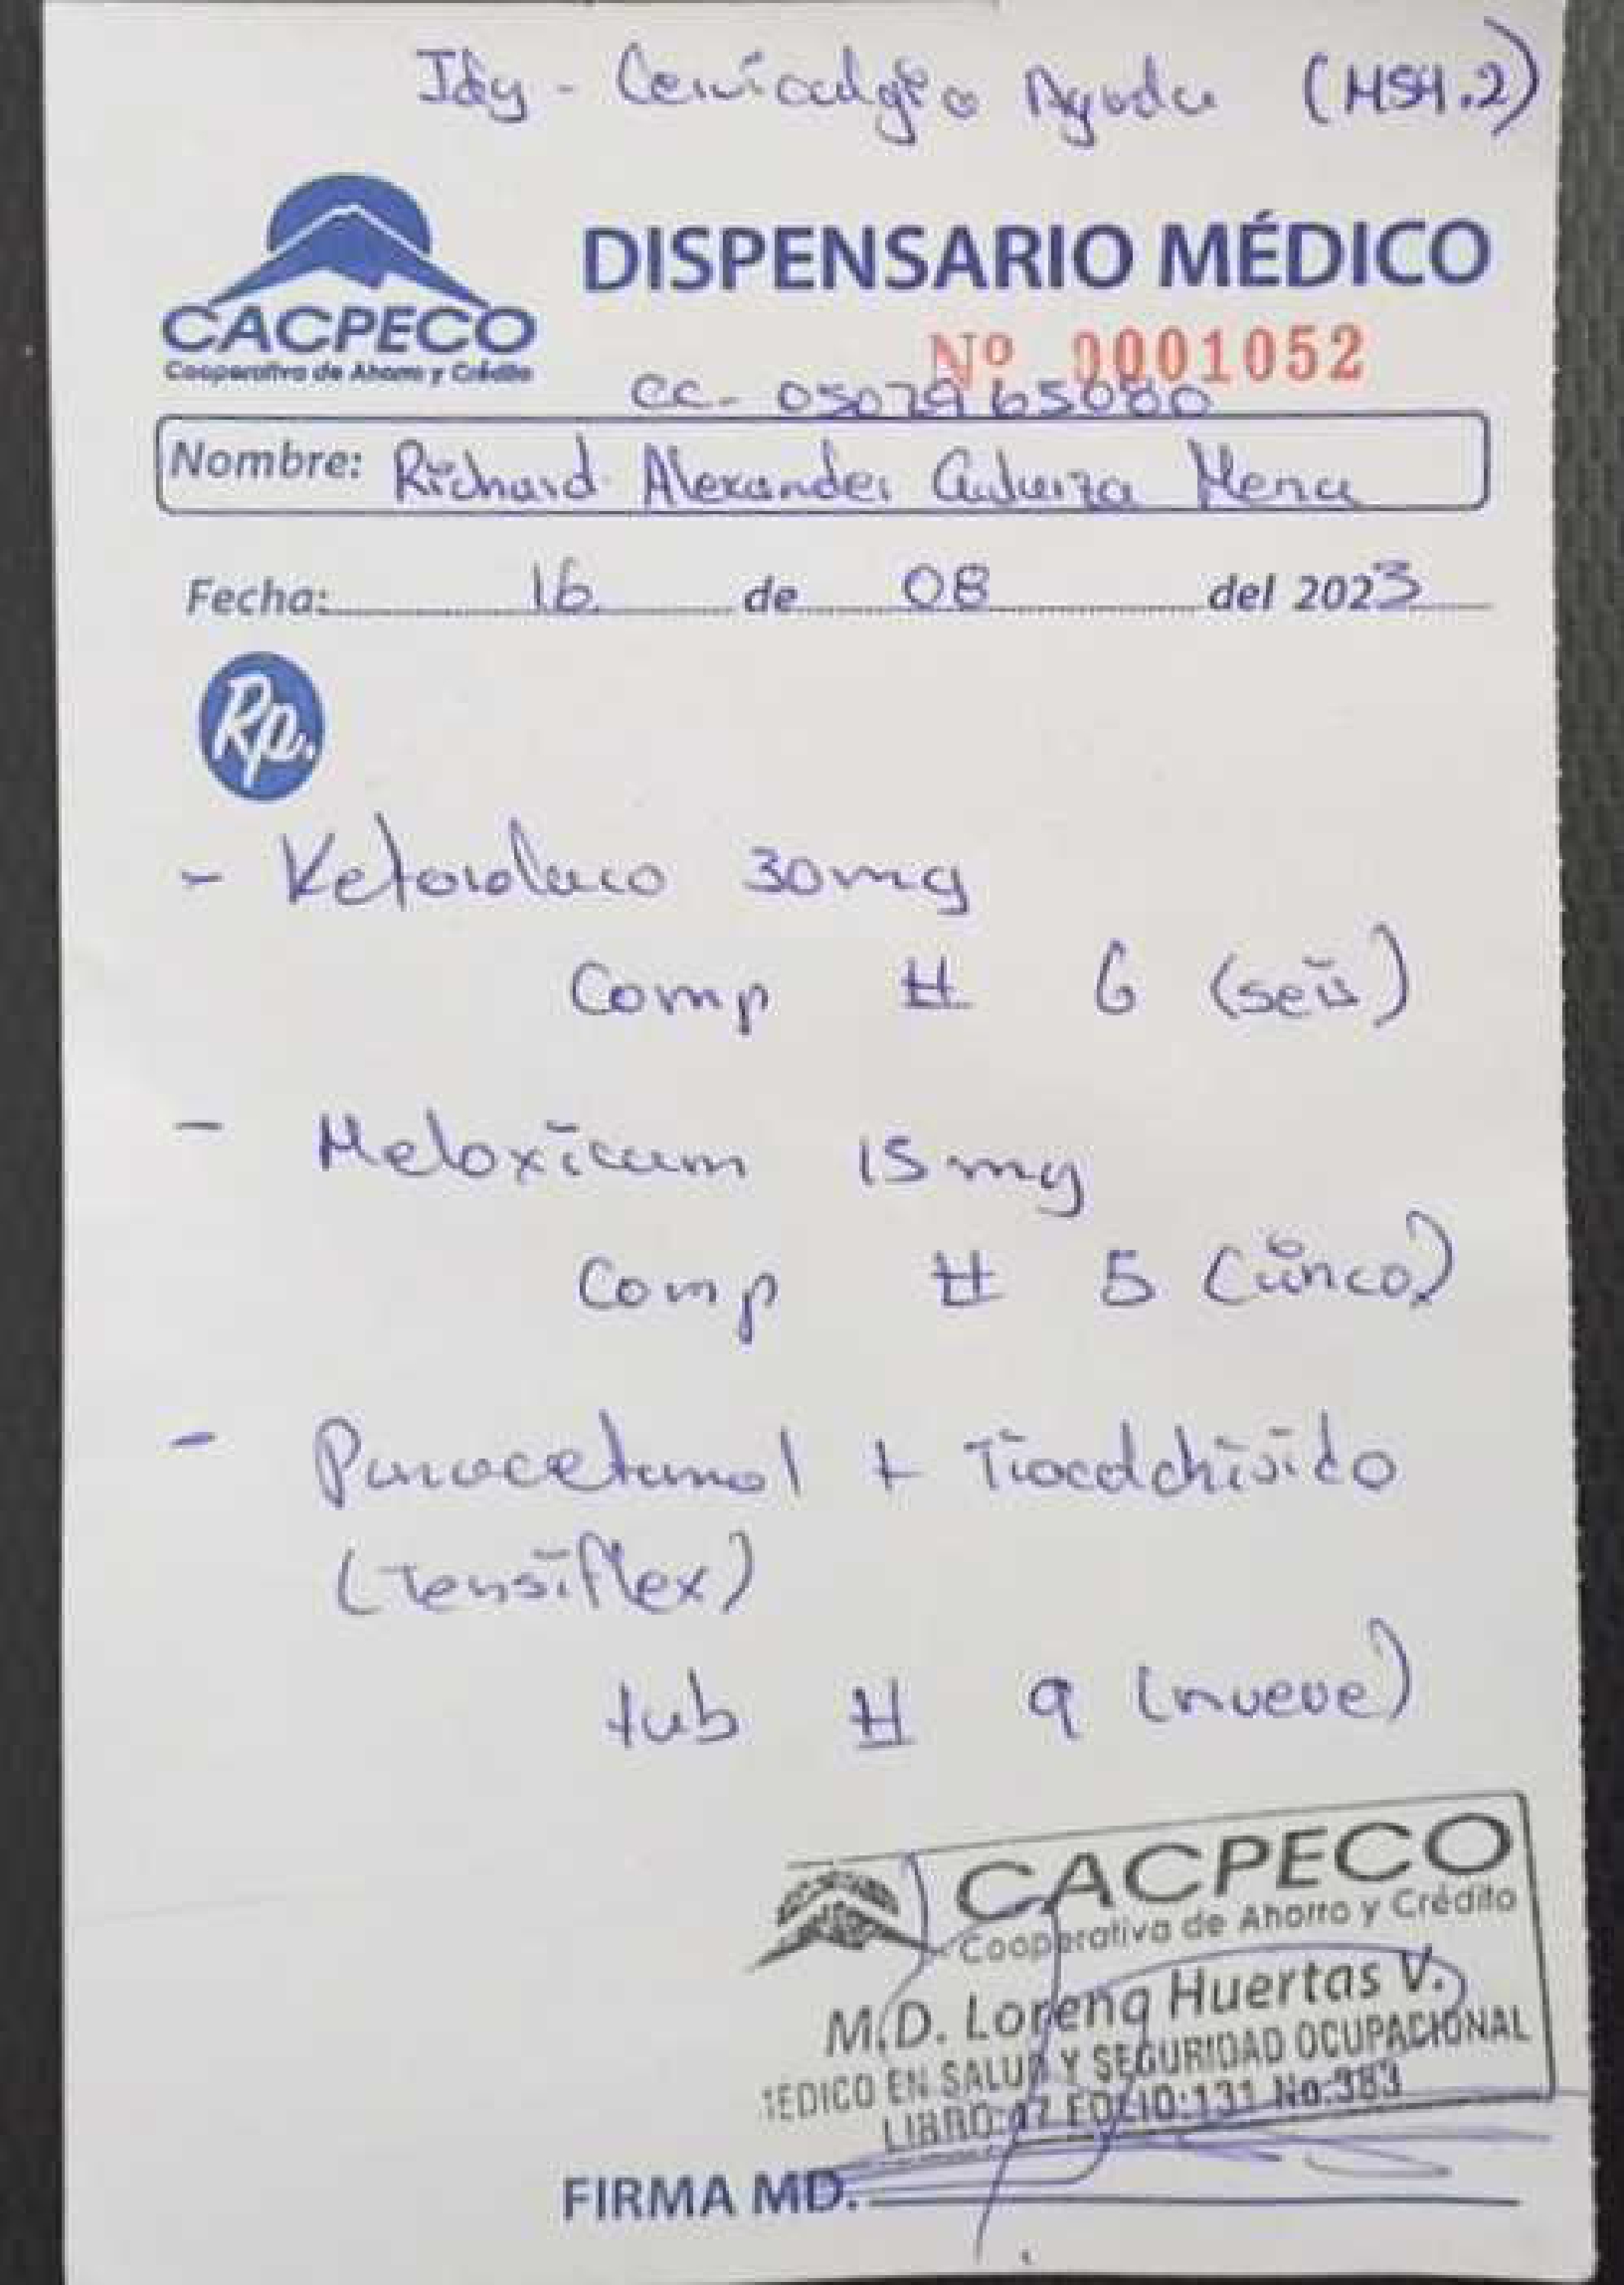 Idg - Cervicalgia Aguda (M54.2)
DISPENSARIO MÉDICO
CACPECO
Cooperativa de Ahorro y Crédito
Nº 0001052
CC-
Nombre: Richard Alexander Mena
Fecha: 16 de 08 del 2023
Rp.
- Ketorolaco 30mg
Comp # 6 (seis)
- Meloxicam 15mg
Comp # 5 (cinco)
- Paracetamol + Tiocolchisido
(Tensiflex)
tab # 9 (nueve)
CACPECO
Cooperativa de Ahorro y Crédito
M.D. Lorena Huertas V.
MÉDICO EN SALUD Y SEGURIDAD OCUPACIONAL
LIBRO:17 FOLIO:131 No:383
FIRMA MD.